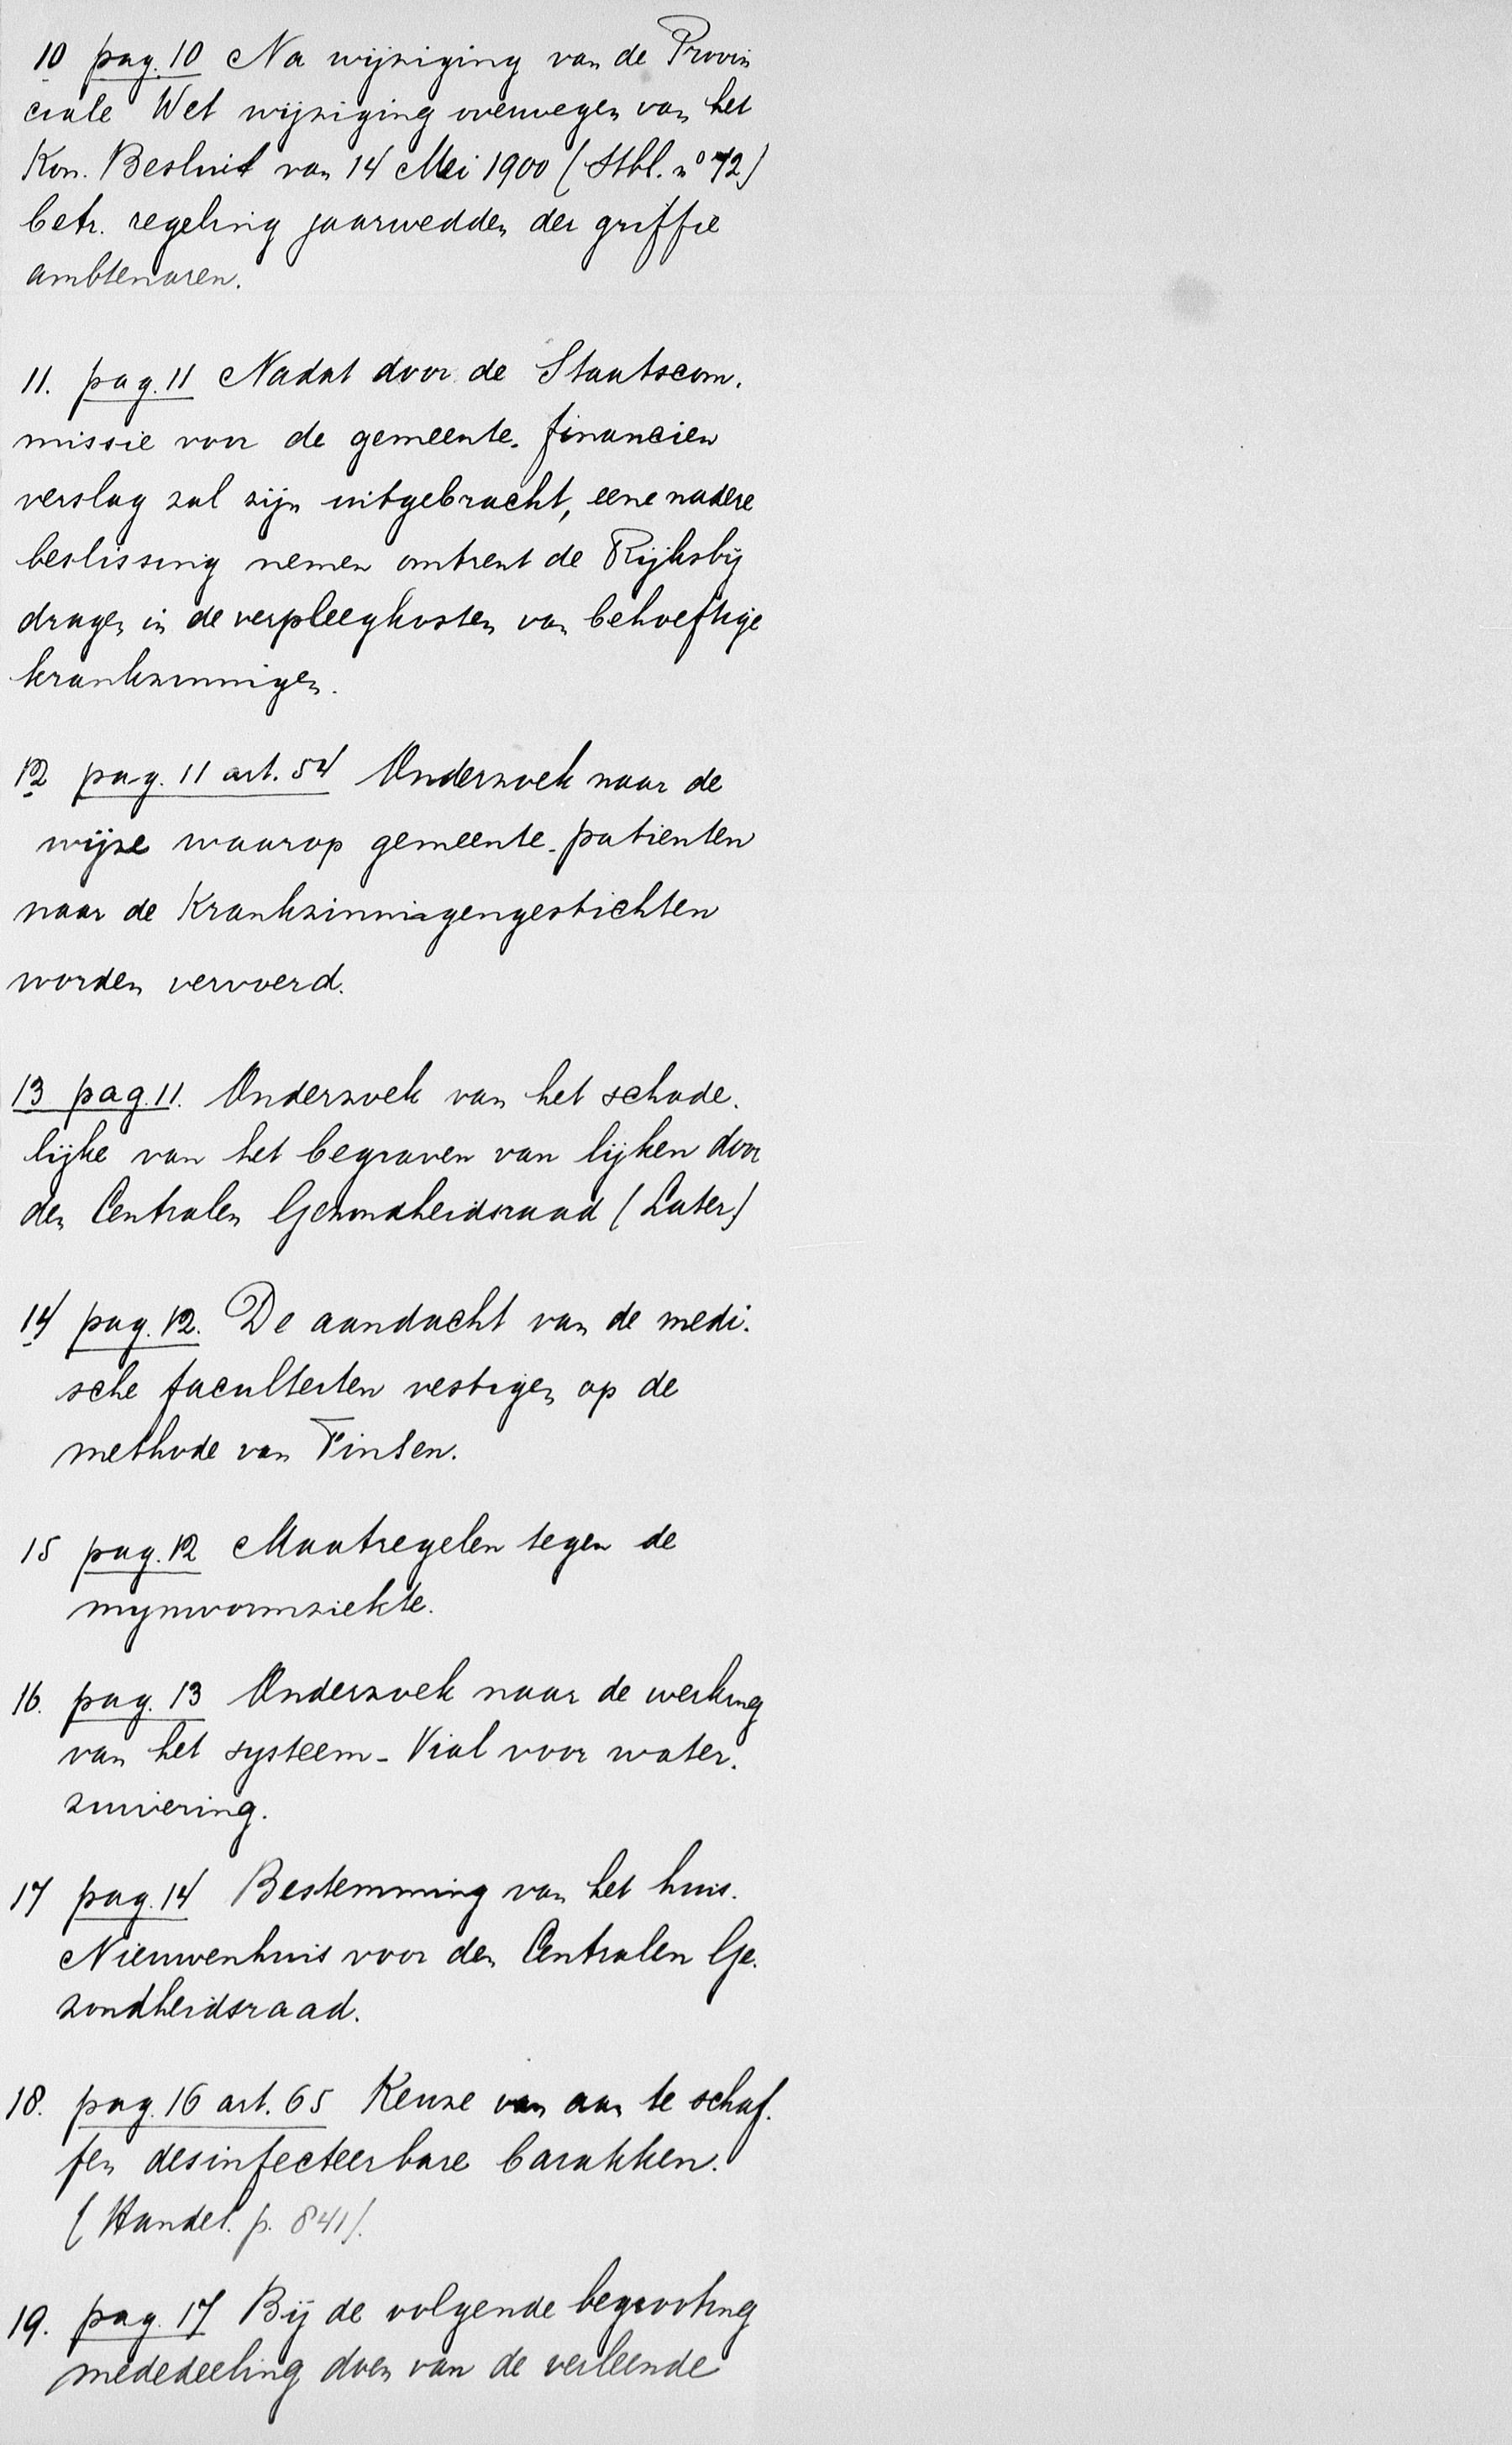 10 pag. 10 Na wijziging van de Provin
ciale Wet wijziging overwegen van het
Kon. Besluit van 14 Mei 1900 (Stbl. no 72)
betr. regeling jaarwedden der griffie
ambtenaren.
11. pag. 11 Nadat door de Staatscom-
missie voor de gemeente-financien
verslag zal zijn uitgebracht, eene nadere
beslissing nemen omtrent de Rijksbij
dragen in de verpleegkosten van behoeftige
krankzinnigen.
12 pag. 11 art. 54 Onderzoek naar de
wijze waarop gemeente-patienten
naar de Krankzinnigengestichten
worden vervoerd.
13 pag. 11. Onderzoek van het schade-
lijke van het begraven van lijken door
den Centralen Gezondheidsraad (Later)
14 pag. 12. De aandacht van de medi-
sche faculteiten vestigen op de
methode van Finsen.
15 pag. 12 Maatregelen tegen de
mynwormziekte.
16. pag. 13 Onderzoek naar de werking
van het systeem-Vial voor water-
zuivering.
17 pag. 14 Bestemming van het huis-
Nieuwenhuis voor den Centralen Ge-
zondheidsraad.
18. pag. 16 art. 65 Keuze van aan te schaf-
fen desinfecteerbare barakken.
(Handel. p. 841).
19. pag. 17 Bij de volgende begrooting
mededeeling doen van de verleende